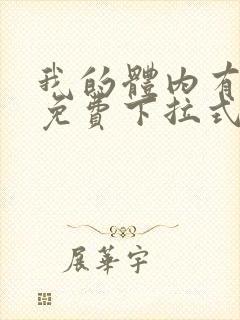 我的體內有
免費下拉式
展華宇